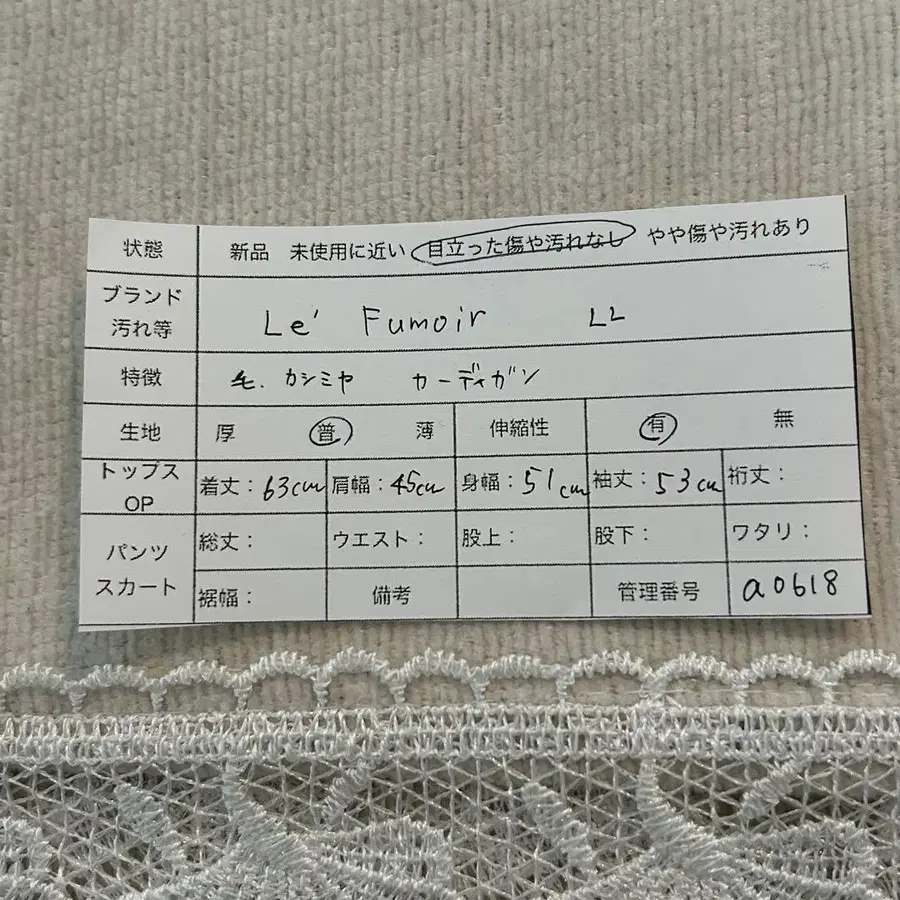 状態 新品 未使用に近い 目立った傷や汚れなし やや傷や汚れあり
ブランド
汚れ等 Le' Fumoir LL
特徴 毛、カシミヤ カーディガン
生地 厚 普 薄 伸縮性 有 無
トップス
OP 着丈：63cm 肩幅：45cm 身幅：51cm 袖丈：53cm 裄丈：
パンツ
スカート 総丈： ウエスト： 股上： 股下： ワタリ：
裾幅： 備考 管理番号 a0618